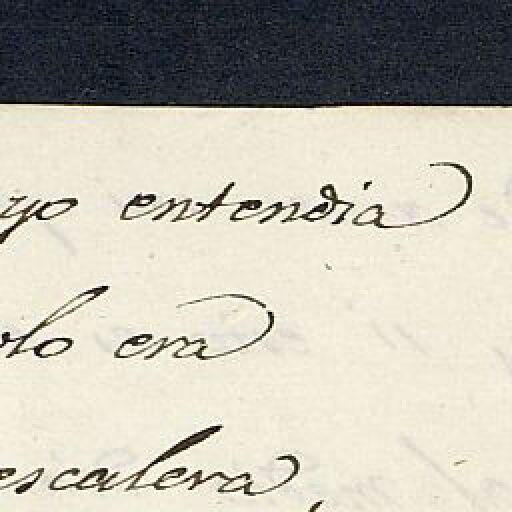 yo entendia
olo era
escalera,